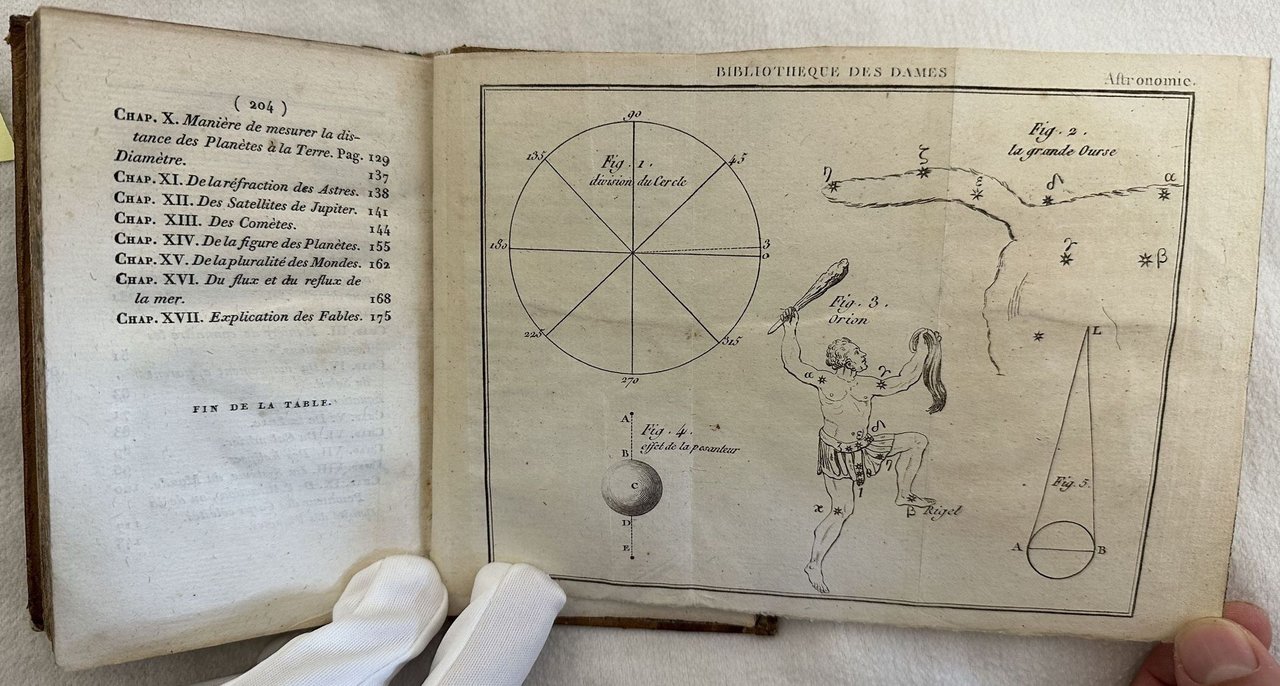 ( 204 )
CHAP. X. Manière de mesurer la dis-
tance des Planètes à la Terre. Pag. 129
Diamètre. 137
CHAP. XI. De la réfraction des Astres. 138
CHAP. XII. Des Satellites de Jupiter. 141
CHAP. XIII. Des Comètes. 144
CHAP. XIV. De la figure des Planètes. 155
CHAP. XV. De la pluralité des Mondes. 162
CHAP. XVI. Du flux et du reflux de
la mer. 168
CHAP. XVII. Explication des Fables. 175
FIN DE LA TABLE.
BIBLIOTHEQUE DES DAMES
Aſtronomie.
90
135
45
Fig. 1.
division du Cercle
180
3
0
225
315
270
Fig. 2.
la grande Ourse
η
ζ
ε
δ
α
γ
β
Fig. 3.
Orion
α
γ
δ
ε
η
ι
χ
β Rigel
Fig. 4.
effet de la pesanteur
A
B
C
D
E
L
Fig. 5.
A
B